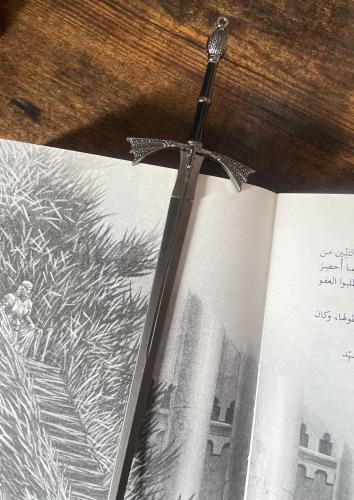 التنّين من
ما أحضِرَ
طلبوا العفو
طولها، وكان
يِّد